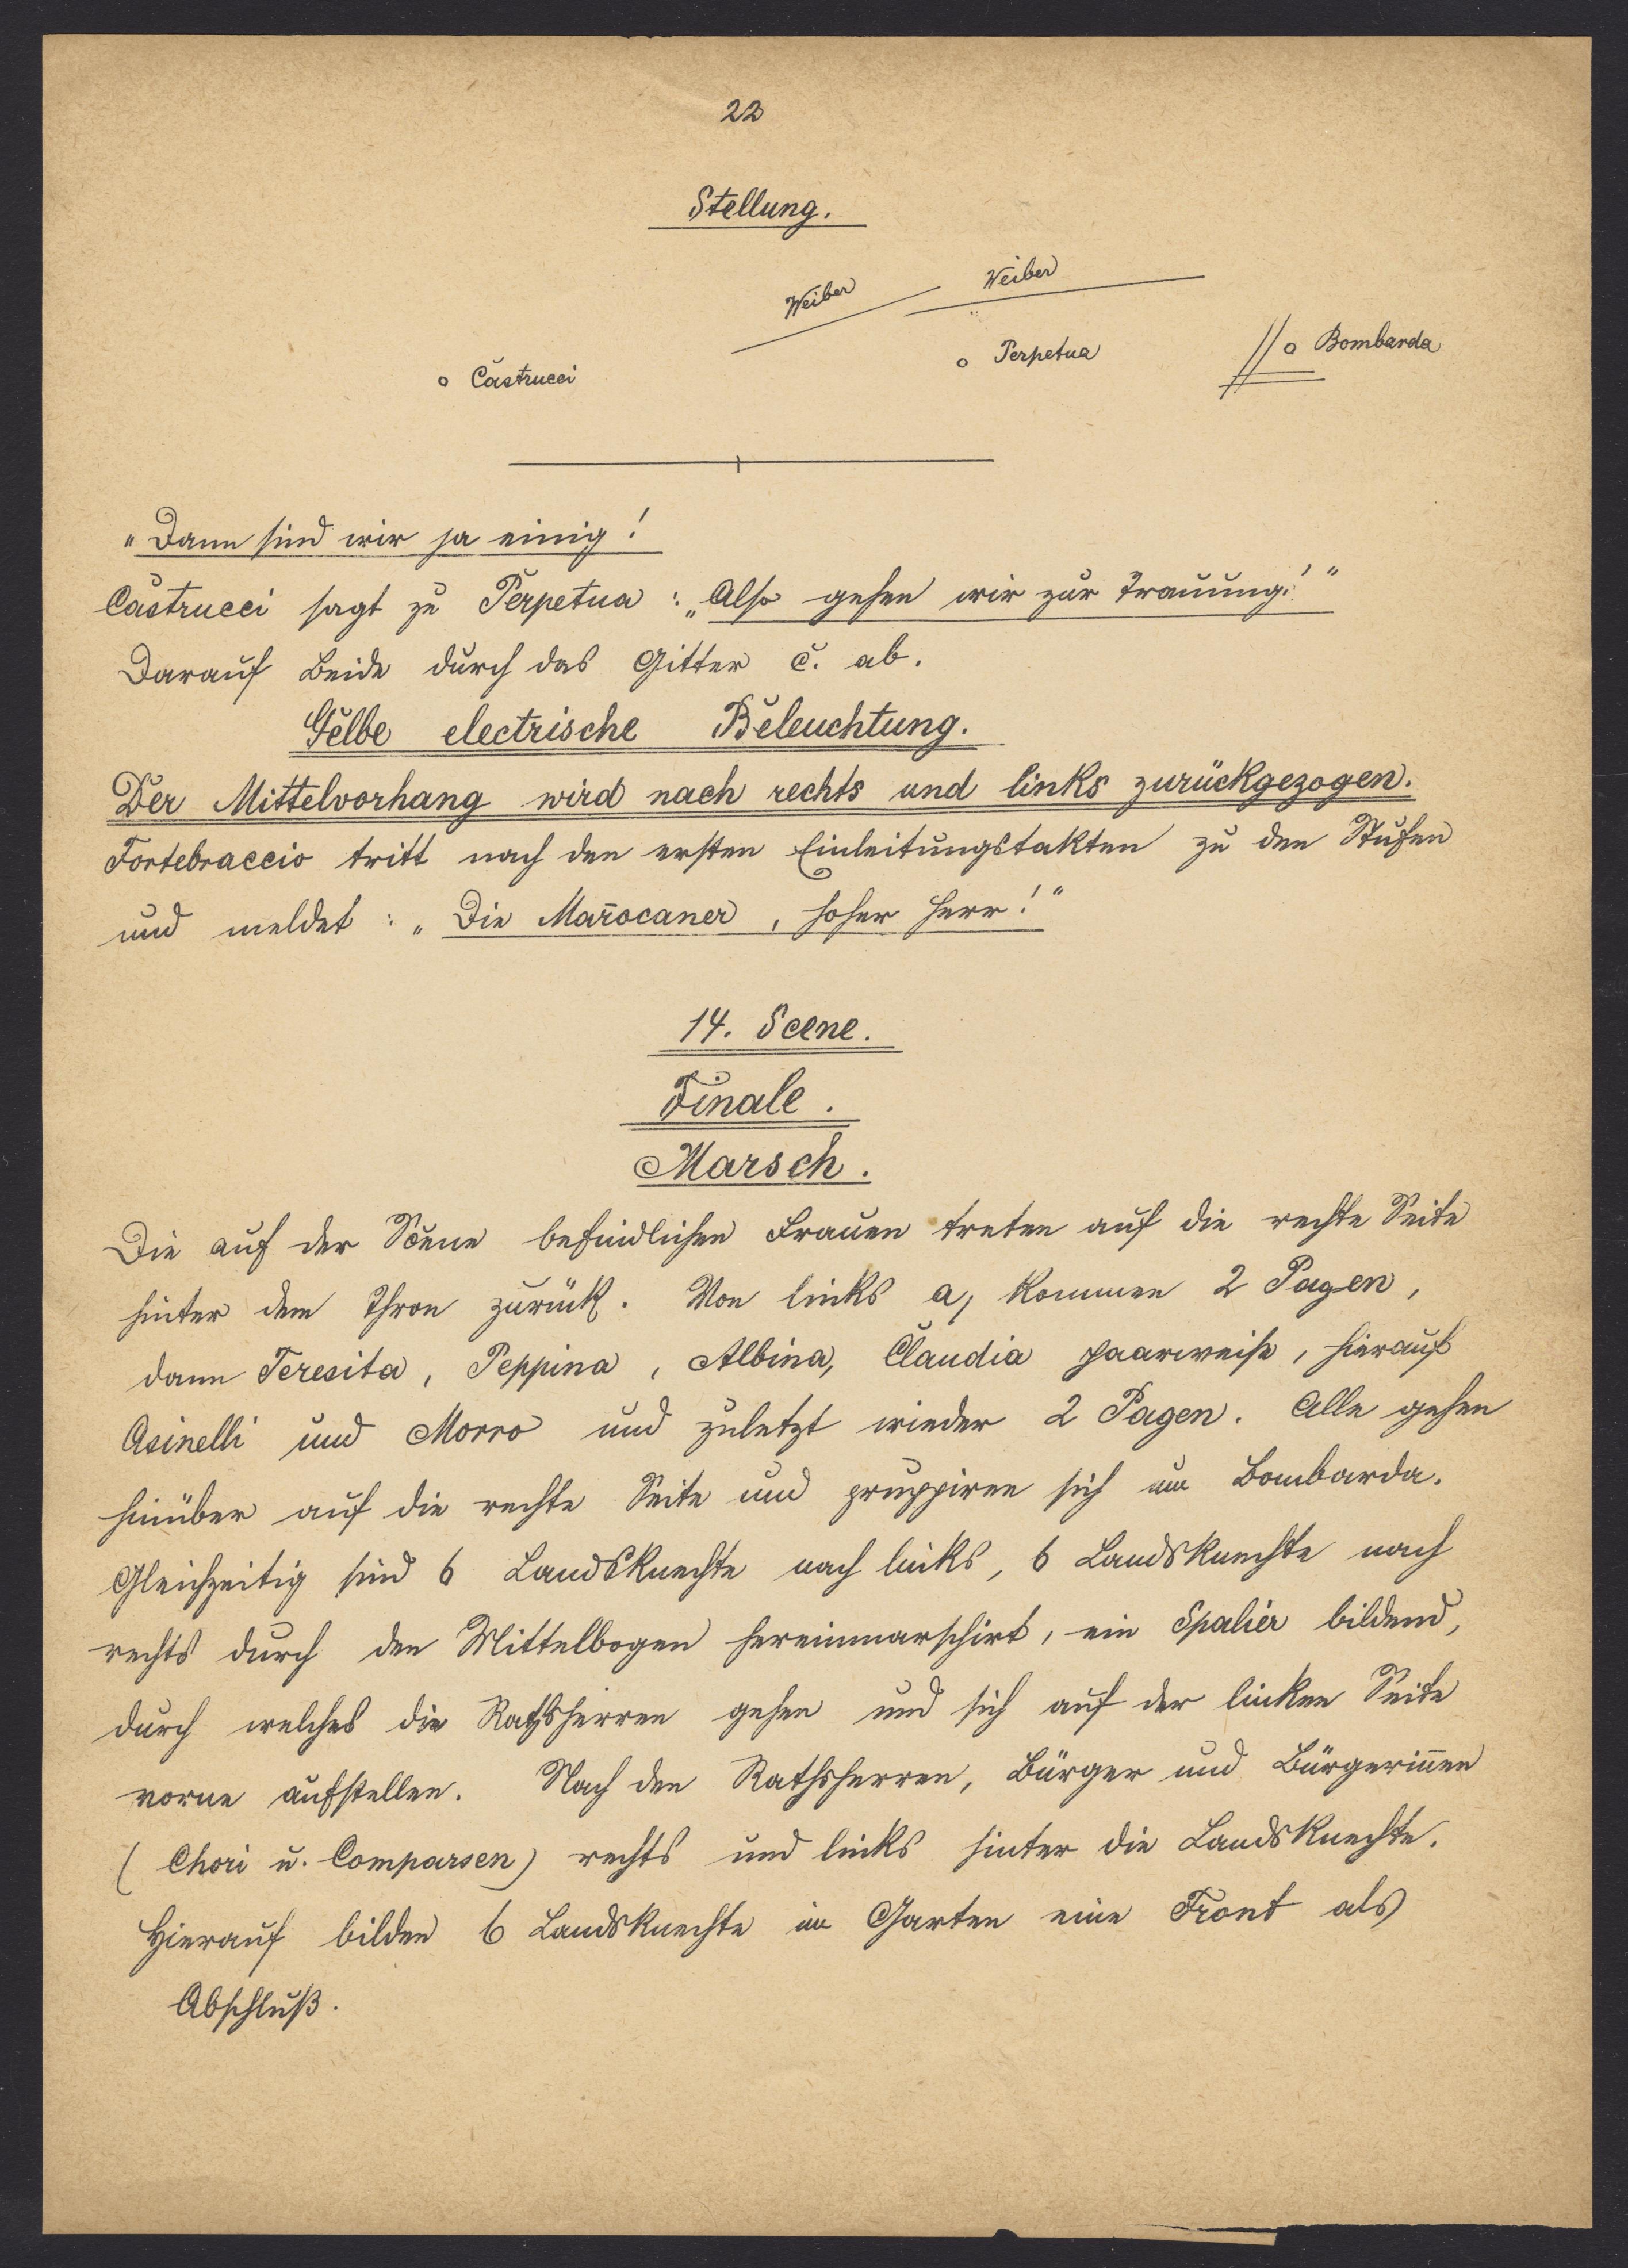 22
Stellung.
Weiber
Weiber
Castrucci
Perpetua
Bombarda
„Dann sind wir ja einig!
Castrucci sagt zu Perpetua: „Also gehen wir zur Trauung!“
Darauf Beide durch das Gitter c. ab.
Gelbe electrische Beleuchtung.
Der Mittelvorhang wird nach rechts und links zurückgezogen.
Fortebraccio tritt nach den ersten Einleitungstakten zu den Stufen
und meldet: „Die Marocaner, hoher Herr!“
14. Scene.
Finale.
Marsch.
Die auf der Scene befindlichen Frauen treten auf die rechte Seite
hinter dem Thron zurück. Von links a, kommen 2 Pagen,
dann Teresita, Peppina, Albina, Claudia paarweise, hierauf
Asinelli und Morro und zuletzt wieder 2 Pagen. Alle gehen
hinüber auf die rechte Seite und gruppiren sich um Bombarda.
Gleichzeitig sind 6 Landsknechte nach links, 6 Landsknechte nach
rechts durch den Mittelbogen hereinmarschirt, ein Spalier bildend,
durch welches die Rathsherren gehen und sich auf der linken Seite
vorne aufstellen. Nach den Rathsherren, Bürger und Bürgerin̄en
(Chori u. Comparsen) rechts und links hinter die Landsknechte.
Hierauf bilden 6 Landsknechte im Garten eine Front als
Abschluß.